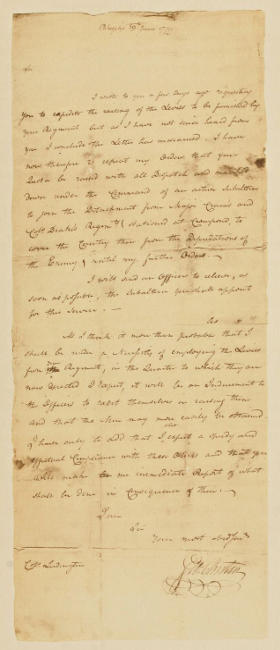 June 1779
Sir
I wrote to you a few days ago requesting
you to expedite the raising of the Levies to be furnished by
your Regiment but as I have not since heard from
you I conclude the Letter has miscarried. I have
now therefore to repeat my Orders that your
Quota be raised with all Dispatch and marched
down under the Command of an active Subaltern
to join the Detachment from Major and
Colo Regmt stationed at Crompond, to
cover the Country there from the Depredations of
the Enemy until my further Orders.
I will send an Officer to relieve, as
soon as possible, the Subaltern you shall appoint
for this Service. —
As
As I think it more than probable that I
shall be under a Necessity of employing the Levies
from your Regiment, in the Quarter to which they are
now directed I expect, it will be an Inducement to
the Officers to exert themselves in raising them
and that the Men may more easily be obtained
I have only to add that I expect a speedy and
effectual Compliance with these Orders and that you
will make to me immediate Report of what
shall be done in Consequence of them. —
I am
Sir
Your most obed Servt
Colo Ludington
Geo Clinton